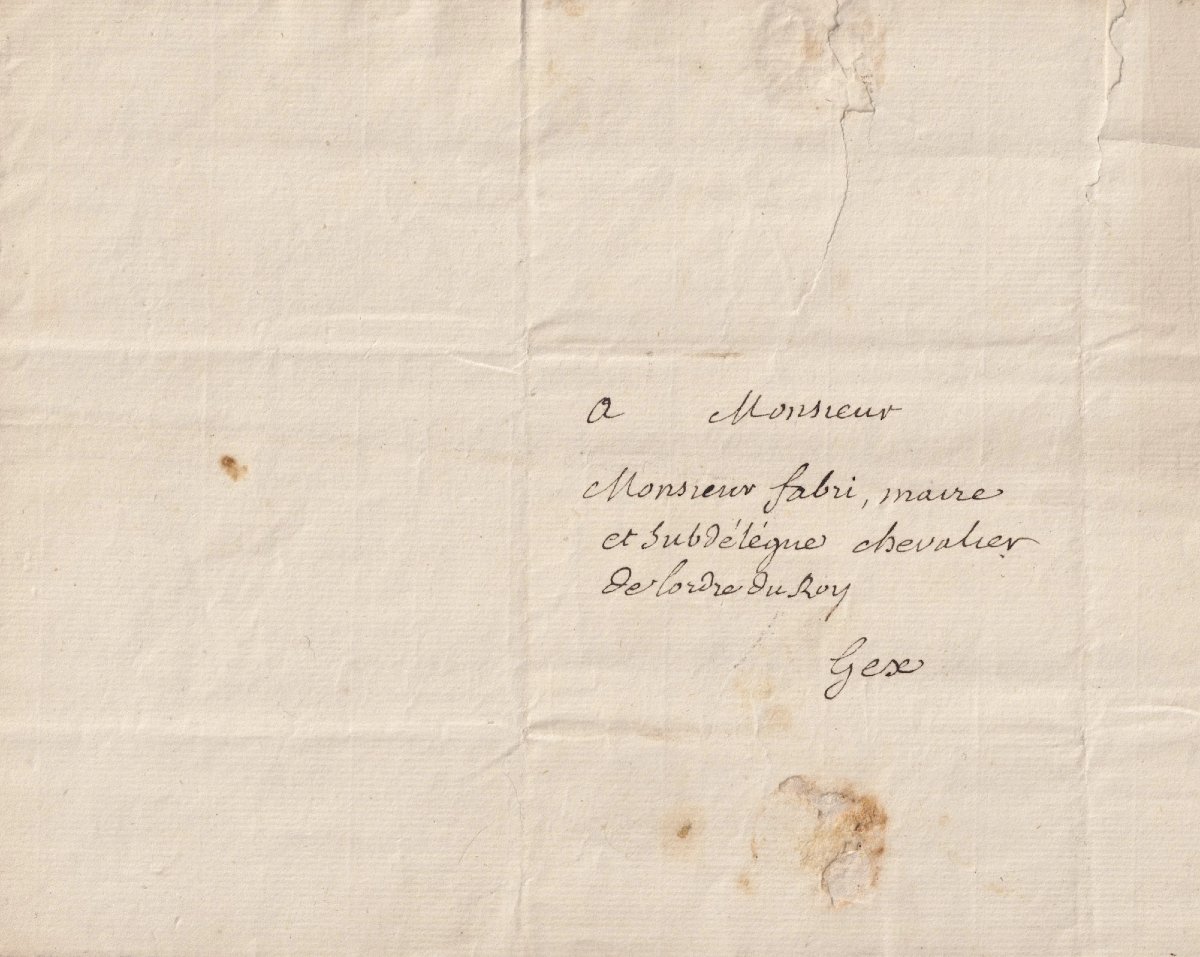 a Monsieur
Monsieur fabri, maire
et subdélégue chevalier
de lordre du Roy
Gex